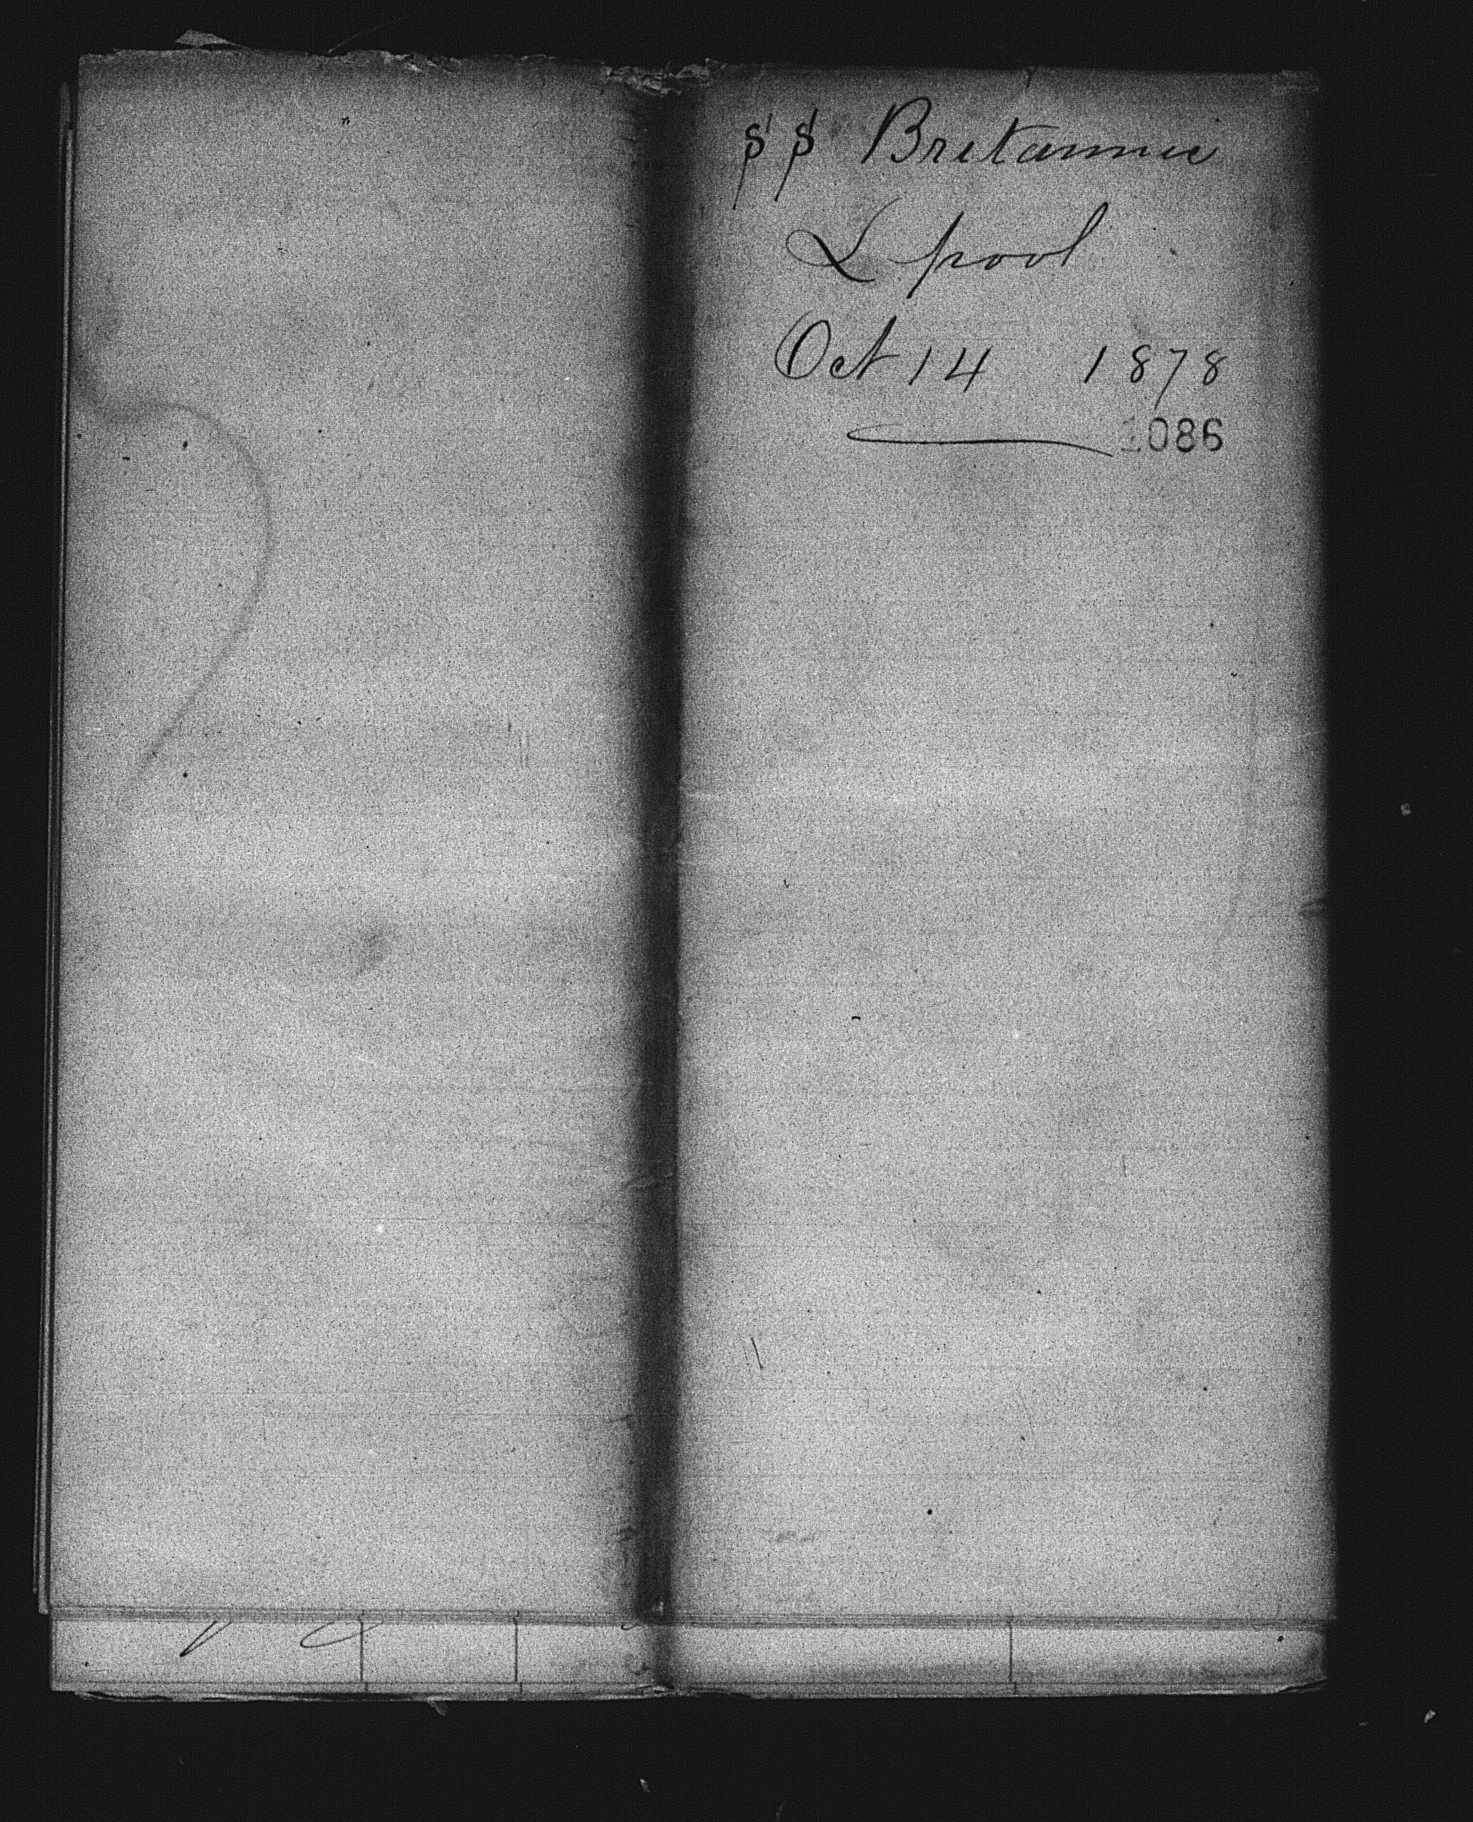 SS Britannic
L pool
Oct 14 1878
1086